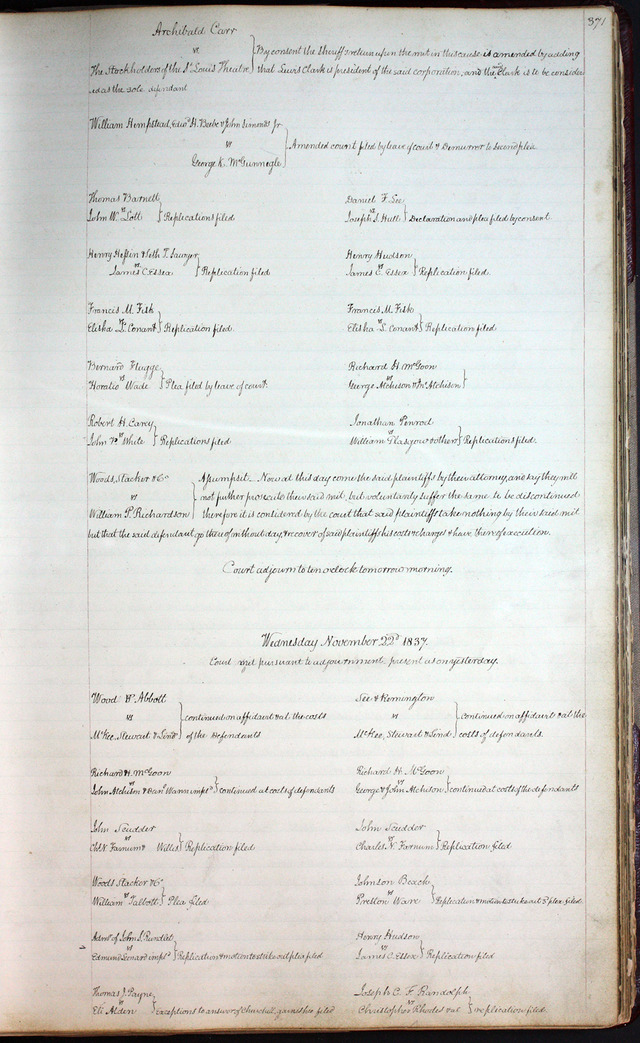 371
Archibald Carr
vs
The Stockholders of the St Louis Theatre } By consent the Sheriffs return upon the writ in this cause is amended by adding
that Lewis Clark is president of the said corporation, and the Clark is to be consider
ed as the sole defendant
William Hempstead, Edwd H. Beebe & John Simonds Jr
vs
George K. McGunnegle } Amended count filed by leave of court & Demurrer to second plea
Thomas Barnett
vs
John W. Lott } Replications filed
Daniel F. See
vs
Joseph S. Hull } Declaration and plea filed by consent
Henry Heflin & Seth T. Sawyer
vs
James C. Essex } Replication filed
Henry Hudson
vs
James C. Essex } Replication filed
Francis M. Fisk
vs
Elisha S. Conant } Replication filed
Francis M. Fisk
vs
Elisha S. Conant } Replication filed
Bernard Flugge
vs
Horatio Wade } Plea filed by leave of court
Richard H. McGoon
vs
George Atchison & Jno Atchison }
Robert H. Carey
vs
John R. White } Replications filed
Jonathan Penrod
vs
William Glasgow & others } Replications filed.
Woods, Stacker & Co
vs
William P. Richardson } Assumpsit. Now at this day come the said plaintiffs by their attorney, and say they will
not further prosecute their said suit, but voluntarily suffer the same to be discontinued
therefore it is considered by the court that said plaintiffs take nothing by their said writ
but that the said defendant go thereof without day, & recover of said plaintiffs his costs & charges & have thereof execution.
Court adjourn to ten o'clock tomorrow morning.
Wednesday November 22d 1837.
Court met pursuant to adjournment, present as on yesterday.
Wood & Abbott
vs
McKee, Stewart & } continued on affidavit & at the costs
of the Defendants
See & Remington
vs
McKee, Stewart & } Continued on affidavit & at the
costs of defendants.
Richard H. McGoon
vs
John Atchison & } continued at costs of defendants
Richard H. McGoon
vs
George & John Atchison } continued at costs of the defendants
John Scudder
vs
Chs N. Farnum & Willis } Replication filed
John Scudder
vs
Charles N. Farnum } Replication filed
Woods Stacker & Co
vs
William Talbott } Plea filed
Johnson Beach
vs
Preston Ware } Replication & motion to strike out 3 plea filed.
of John S. Rundlet
vs
Edmund } Replication & motion to strike out plea filed
Henry Hudson
vs
James C. Essex } Replication filed
Thomas J. Payne
vs
Eli Alden } exceptions to answer of Churchill garnishee filed
Joseph C. F. Randolph
vs
Christopher Rhodes & al } replication filed.